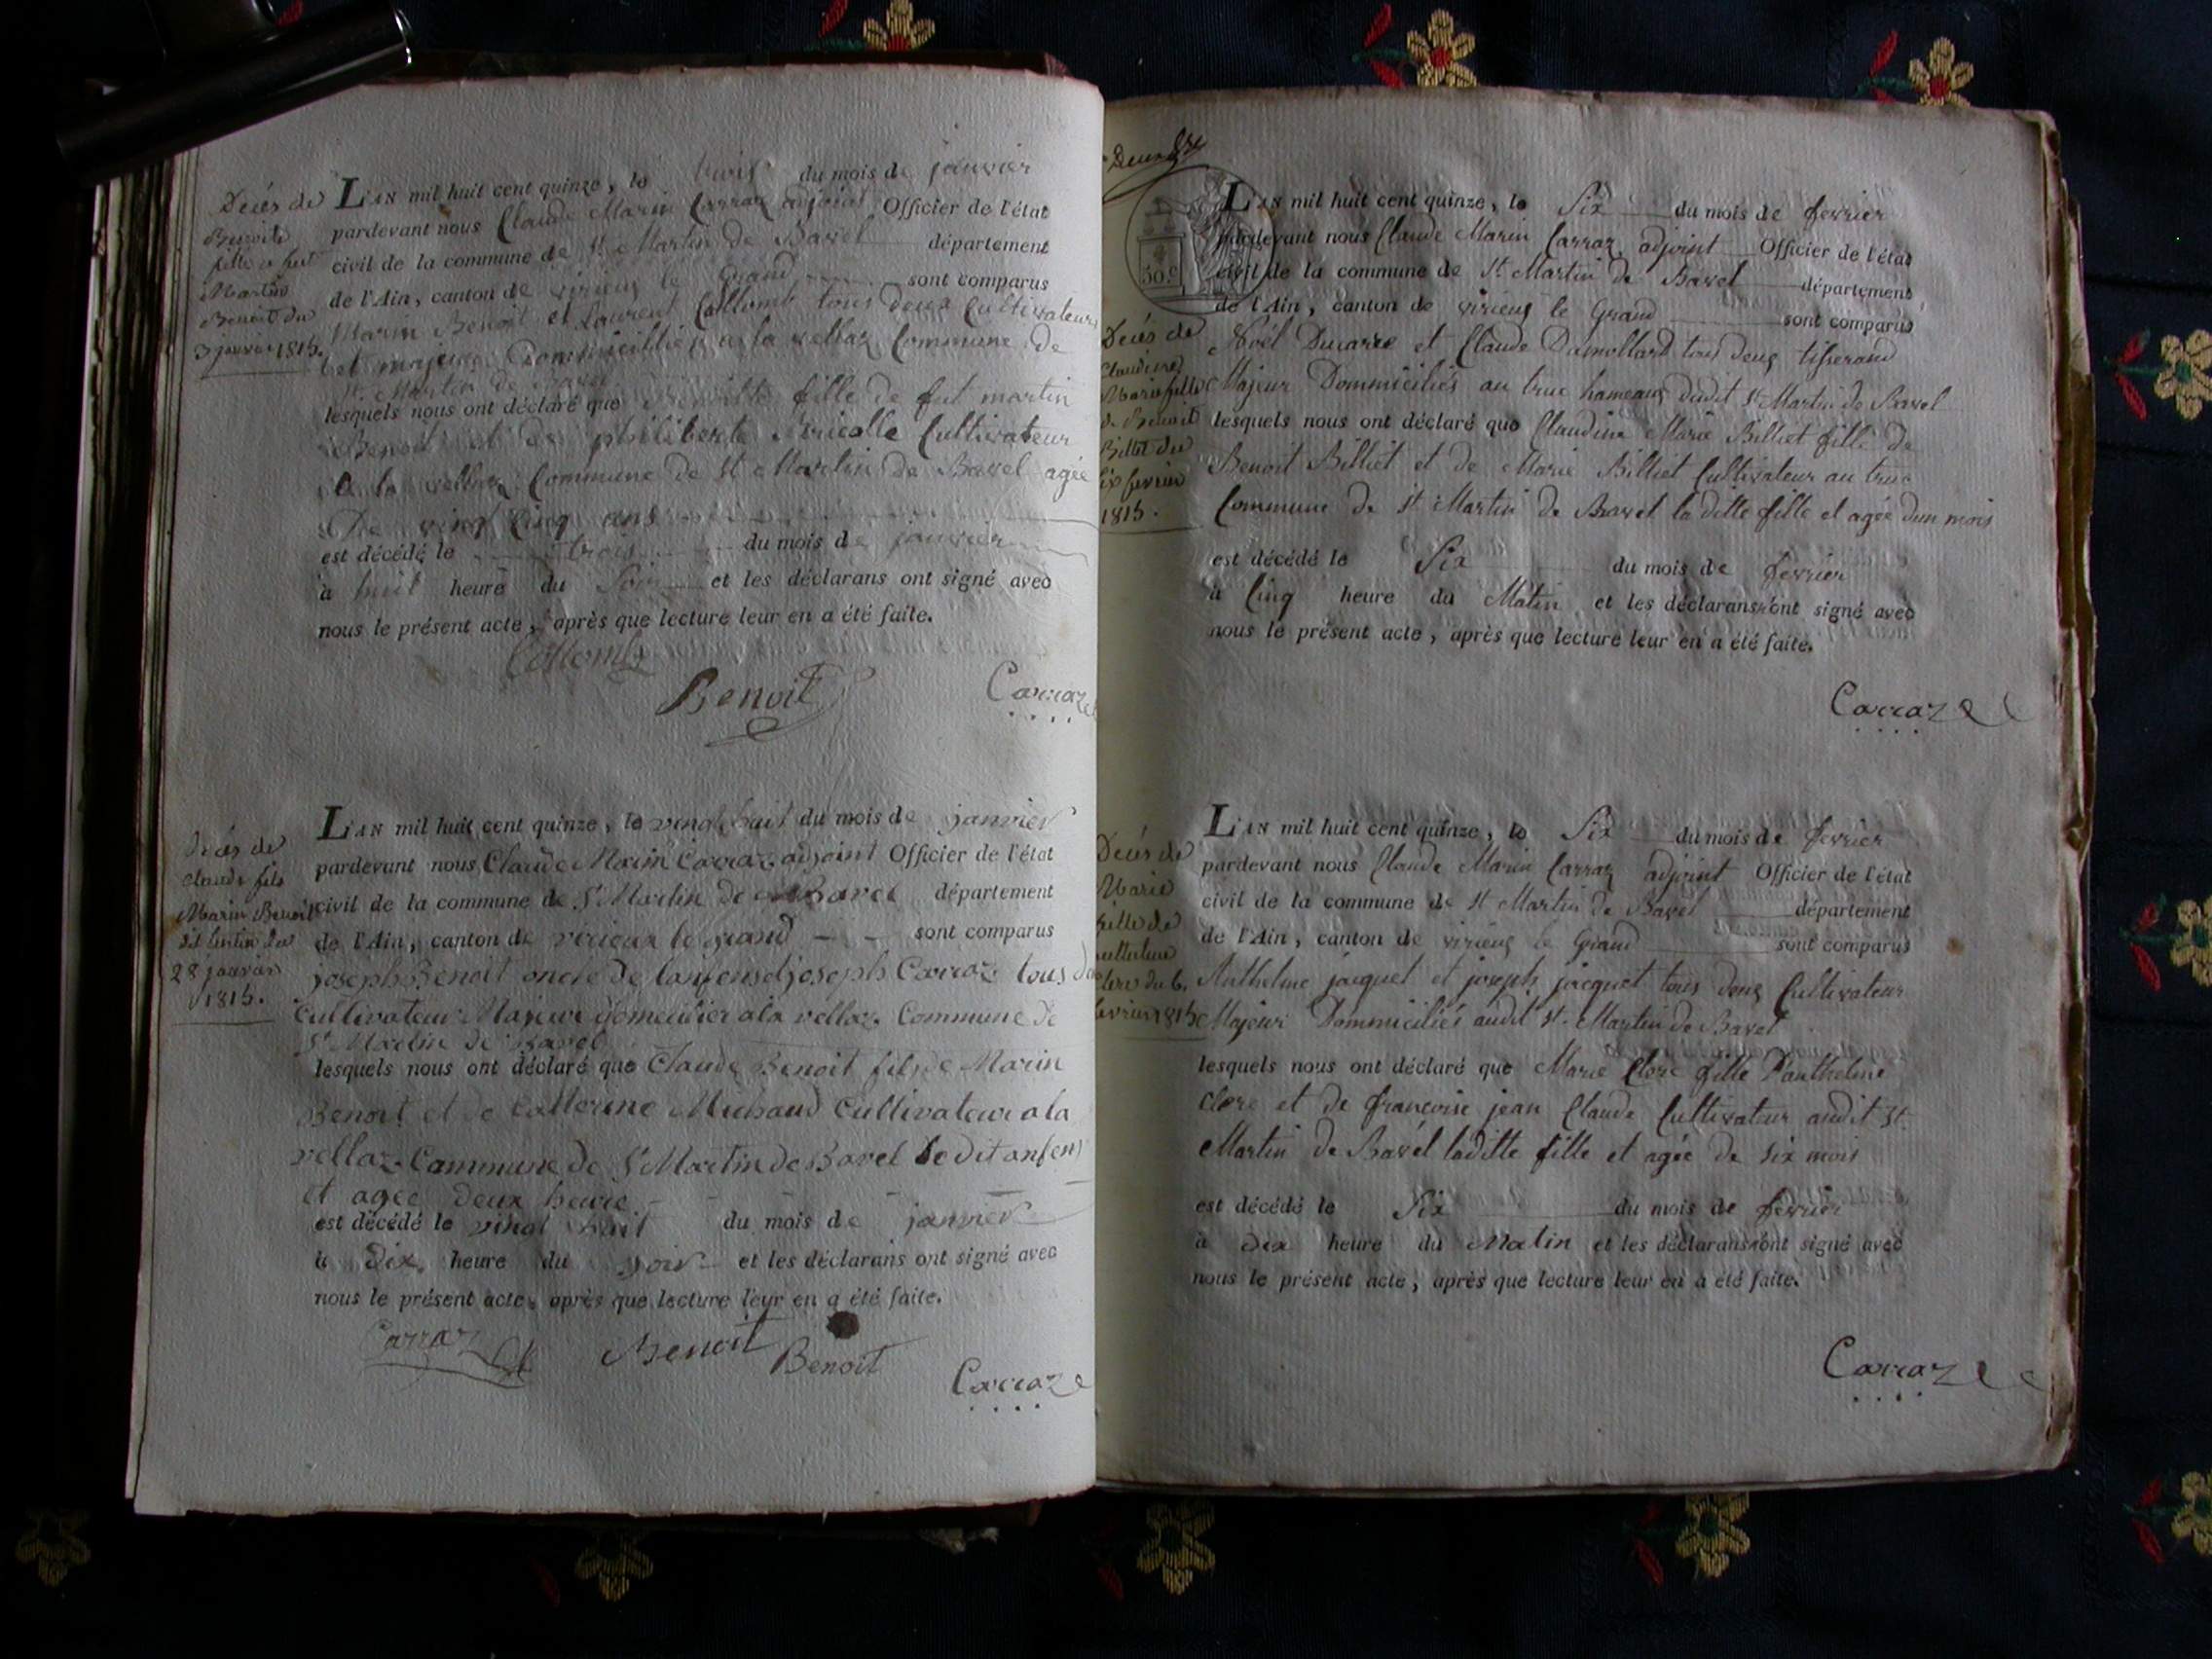 Décés de
Benoite
fille a fut
Martin
Benoit du
3 janvier 1815.
L'AN mil huit cent quinze, le trois du mois de janvier
pardevant nous Claude Marin Carraz adjoint Officier de l'état
civil de la commune de St Martin de Bavel département
de l'Ain, canton de virieux le Grand sont comparus
Marin Benoit et Laurent Collomb tous deux Cultivateurs
et majeurs Dommicilliés a la vellaz Commune de
St. Martin de Bavel
lesquels nous ont déclaré que Benoitte fille de fut martin
Benoit et de philiberte Cultivateur
a la vellaz Commune de St Martin de Bavel agée
De vingt Cinq ans
est décédé le trois du mois de janvier
à huit heure du Soir et les déclarans ont signé avec
nous le présent acte, après que lecture leur en a été faite.
Collomb
Benoit
Carraz
Décés de
Claude fils
Marin Benoit
du
28 janvier
1815.
L'AN mil huit cent quinze, le vingt huit du mois de janvier
pardevant nous Claude Marin Carraz adjoint Officier de l'état
civil de la commune de St Martin de Bavel département
de l'Ain, canton de virieux le grand sont comparus
joseph Benoit oncle de lanfens et joseph Carraz tous
Cultivateur Majeure domicilier a la vellaz Commune de
St Martin de Bavel
lesquels nous ont déclaré que Claude Benoit fils de Marin
Benoit et de Catterine Michaud Cultivateur a la
vellaz Commune de St Martin de Bavel le dit anfens
et agee deux heure
est décédé le vingt huit du mois de janvier
à Dix heure du soir et les déclarans ont signé avec
nous le présent acte, après que lecture leur en a été faite.
Carraz Benoit Benoit
Carraz
30.c
Décés de
Claudine
Marie fille
de Benoit
Billet du
six fevrier
1815.
L'AN mil huit cent quinze, le Six du mois de fevrier
pardevant nous Claude Marin Carraz adjoint Officier de l'état
civil de la commune de St. Martin de Bavel département
de l'Ain, canton de virieux le Grand sont comparus
Noël Ducarre et Claude Dumollard tous deux tisserand
Majeur Dommiciliés au truc hameaux dudit St Martin de Bavel
lesquels nous ont déclaré que Claudine Marie Billiet fille de
Benoit Billiet et de Marie Billiet Cultivateur au truc
Commune de St Martin de Bavel la ditte fille et agée dun mois
est décédé le Six du mois de fevrier
à Cinq heure du Matin et les déclarans ont signé avec
nous le présent acte, après que lecture leur en a été faite.
Carraz
Décés de
Marie
fille de
Anthelme
Clerc du 6.
fevrier 1815
L'AN mil huit cent quinze, le Six du mois de fevrier
pardevant nous Claude Marin Carraz adjoint Officier de l'état
civil de la commune de St Martin de Bavel département
de l'Ain, canton de virieux le Grand sont comparus
Anthelme jacquet et joseph jacquet tous deux Cultivateur
Majeur Dommiciliés audit St. Martin de Bavel
lesquels nous ont déclaré que Marie Clerc fille D'anthelme
Clerc et de francoise jean Claude Cultivateur audit St.
Martin de Bavel laditte fille et agée de six mois
est décédé le Six du mois de fevrier
à dix heure du Matin et les déclarans ont signé avec
nous le présent acte, après que lecture leur en a été faite.
Carraz